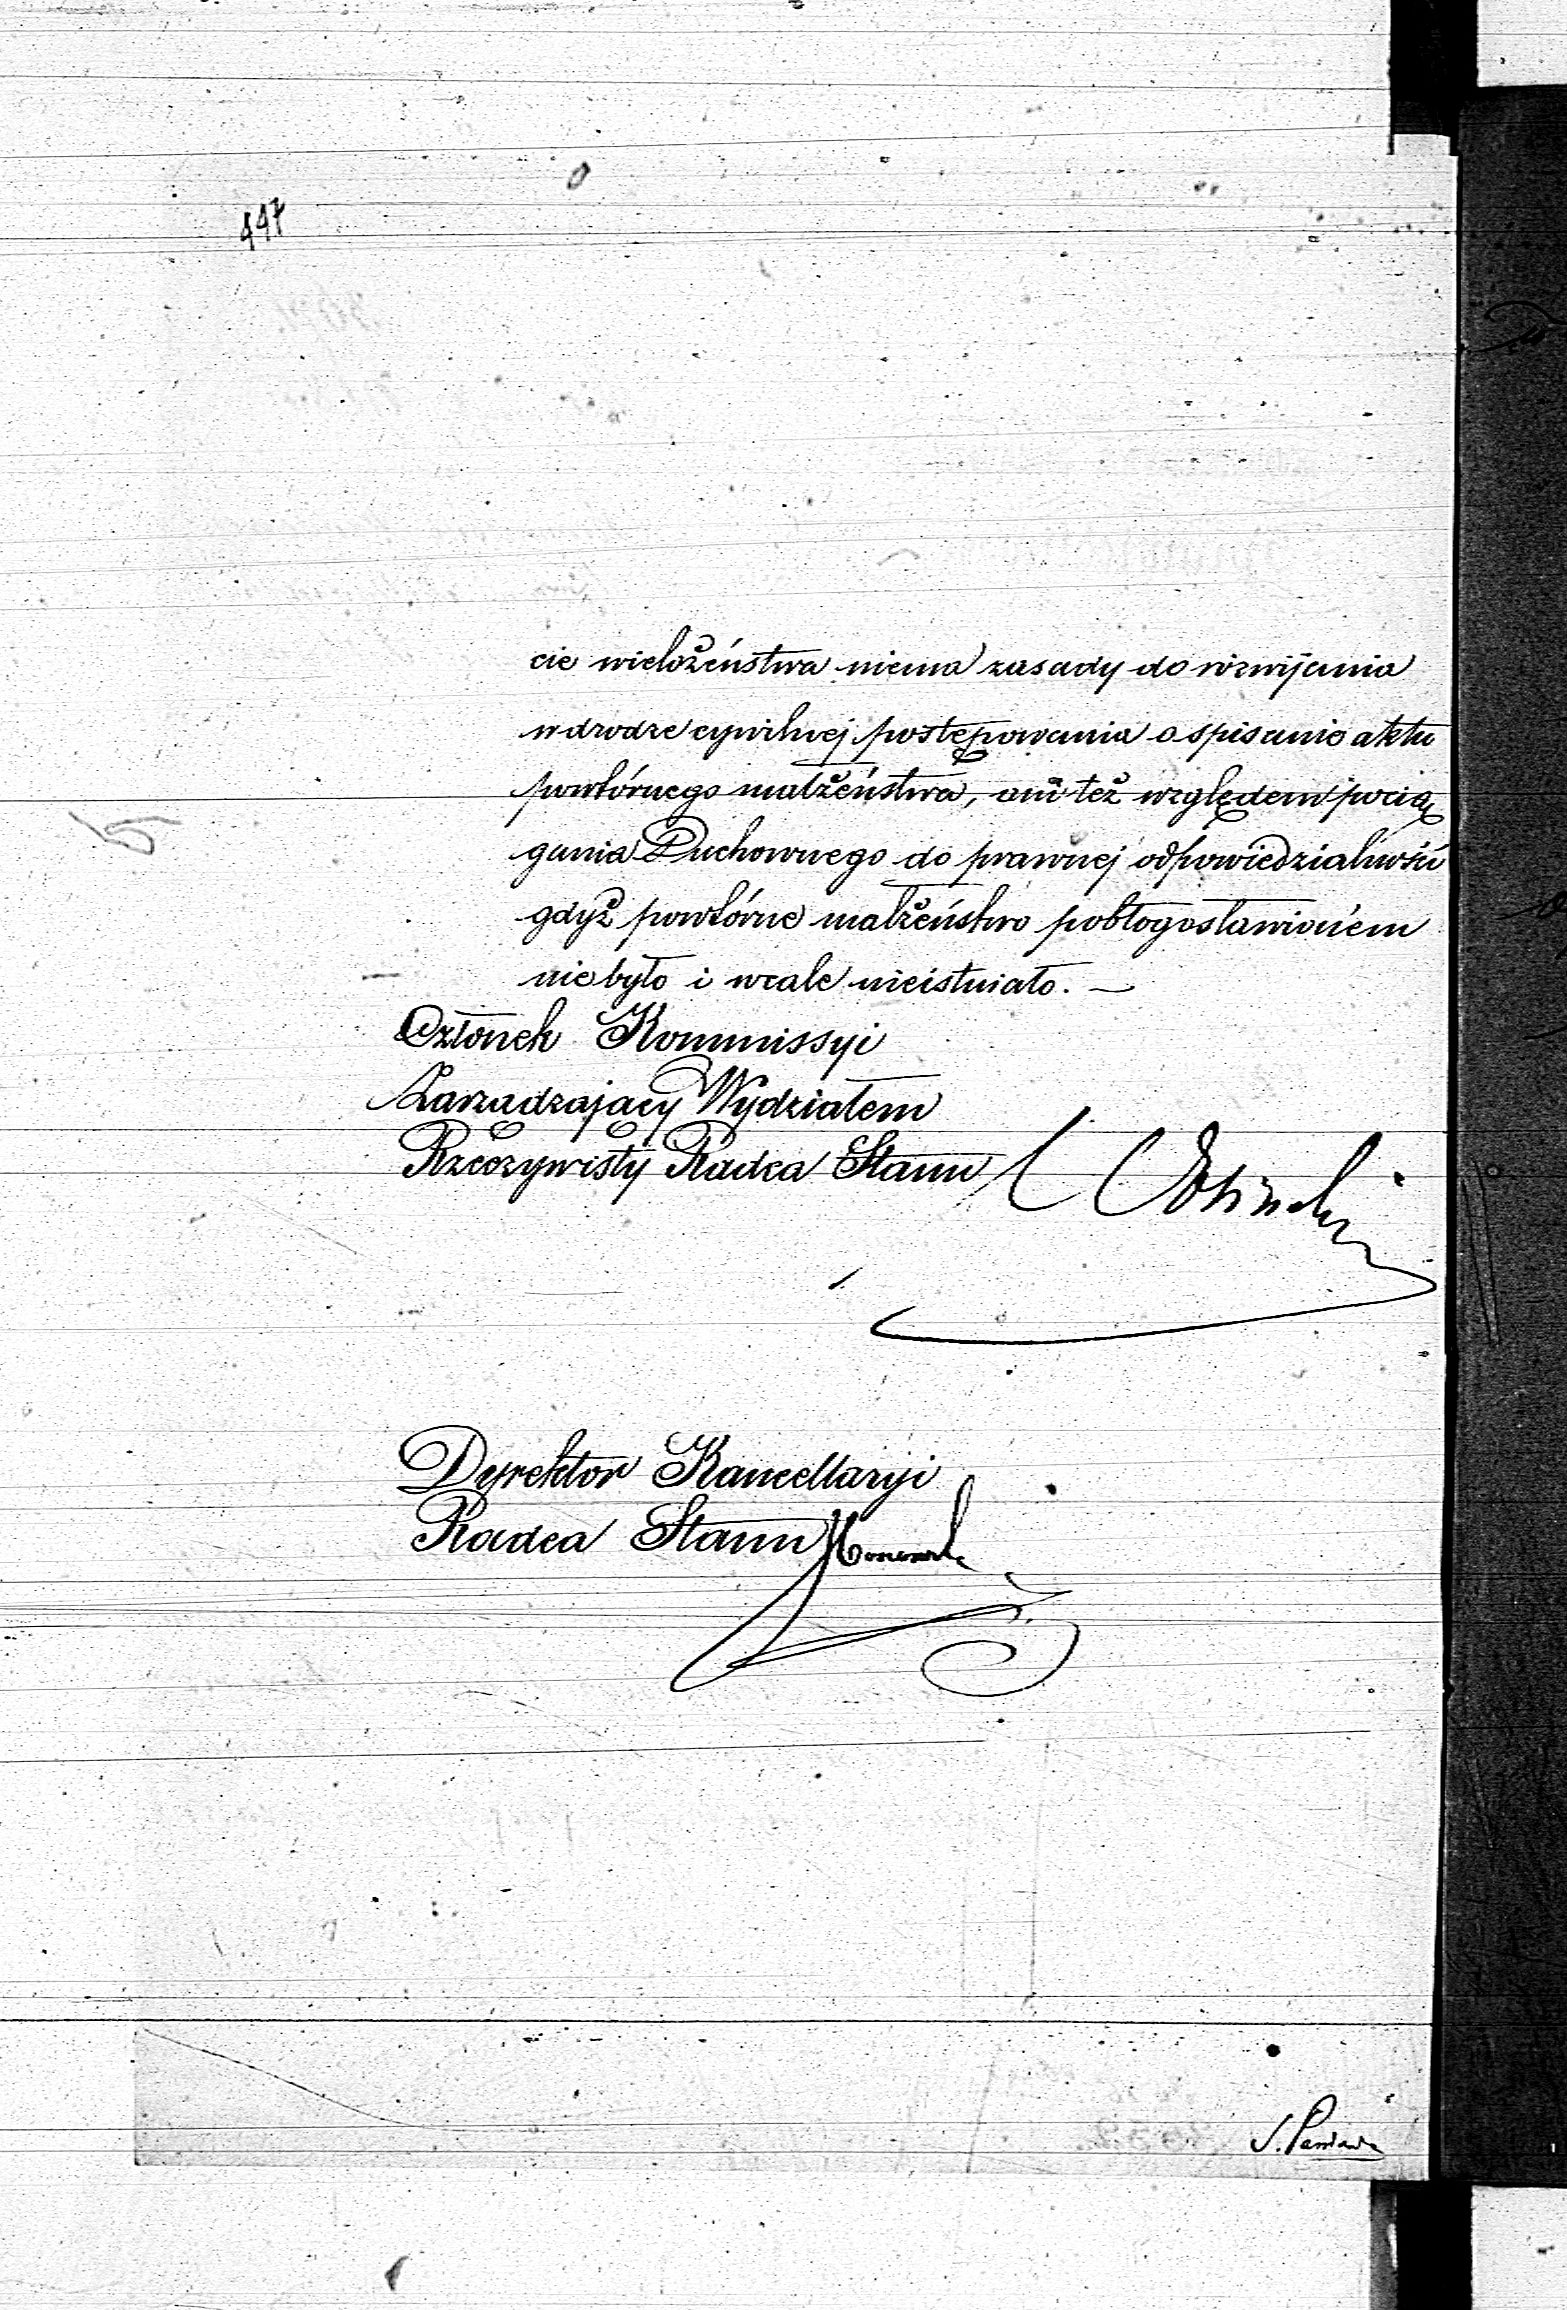 447
cie wielożeństwa niema zasady do rozwijania
w drodze cywilnej postępowania o spisanie aktu
powtórnego małżeństwa, ani też względem pocią
gania Duchownego do prawnej odpowiedzialności
gdyż powtórne małżeństwo pobłogosławioném
nie było i wcale nieistniało. —
Członek Kommissyi
Zarządzający Wydziałem
Rzeczywisty Radca Stanu
Dyrektor Kancellaryi
Radca Stanu